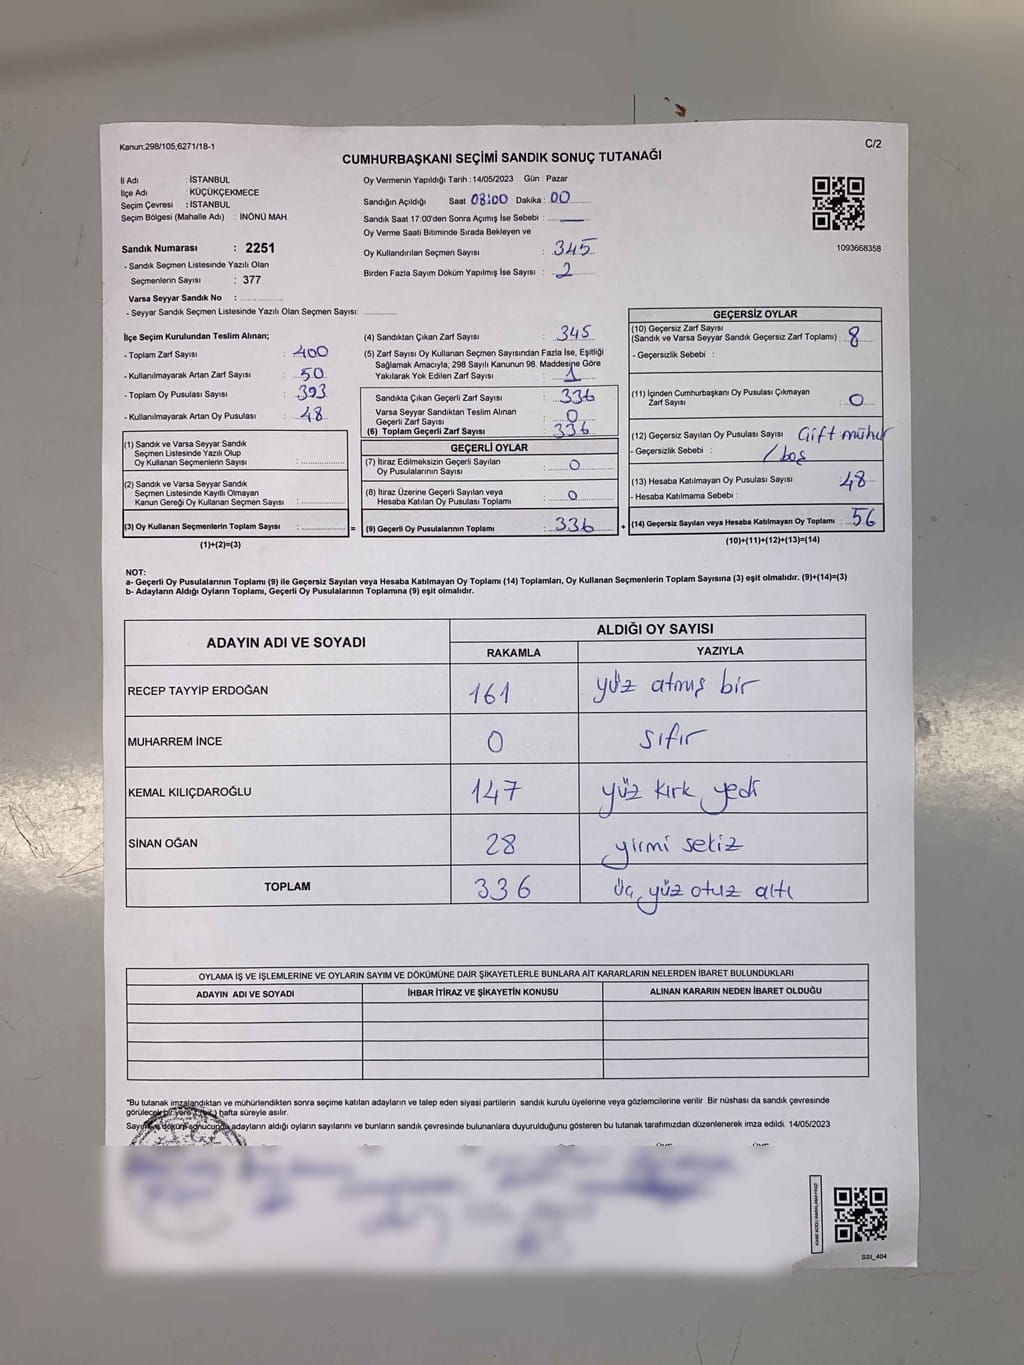 Kanun;298/105;6271/18-1
C/2
CUMHURBAŞKANI SEÇİMİ SANDIK SONUÇ TUTANAĞI
İl Adı : İSTANBUL
İlçe Adı : KÜÇÜKÇEKMECE
Seçim Çevresi : İSTANBUL
Seçim Bölgesi (Mahalle Adı) : İNÖNÜ MAH.
Sandık Numarası : 2251
- Sandık Seçmen Listesinde Yazılı Olan
Seçmenlerin Sayısı : 377
Varsa Seyyar Sandık No :
- Seyyar Sandık Seçmen Listesinde Yazılı Olan Seçmen Sayısı:
Oy Vermenin Yapıldığı Tarih : 14/05/2023 Gün : Pazar
Sandığın Açıldığı Saat 08:00 Dakika : 00
Sandık Saat 17.00'den Sonra Açımış İse Sebebi :
Oy Verme Saati Bitiminde Sırada Bekleyen ve
Oy Kullandırılan Seçmen Sayısı : 345
Birden Fazla Sayım Döküm Yapılmış İse Sayısı : 2
1093668358
İlçe Seçim Kurulundan Teslim Alınan;
- Toplam Zarf Sayısı : 400
- Kullanılmayarak Artan Zarf Sayısı : 50
- Toplam Oy Pusulası Sayısı : 393
- Kullanılmayarak Artan Oy Pusulası : 48
(1) Sandık ve Varsa Seyyar Sandık
Seçmen Listesinde Yazılı Olup
Oy Kullanan Seçmenlerin Sayısı :
(2) Sandık ve Varsa Seyyar Sandık
Seçmen Listesinde Kayıtlı Olmayan
Kanun Gereği Oy Kullanan Seçmen Sayısı :
(3) Oy Kullanan Seçmenlerin Toplam Sayısı : =
(1)+(2)=(3)
(4) Sandıktan Çıkan Zarf Sayısı : 345
(5) Zarf Sayısı Oy Kullanan Seçmen Sayısından Fazla İse, Eşitliği
Sağlamak Amacıyla, 298 Sayılı Kanunun 98. Maddesine Göre
Yakılarak Yok Edilen Zarf Sayısı : 1
Sandıkta Çıkan Geçerli Zarf Sayısı : 336
Varsa Seyyar Sandıktan Teslim Alınan
Geçerli Zarf Sayısı : 0
(6) Toplam Geçerli Zarf Sayısı : 336
GEÇERLİ OYLAR
(7) İtiraz Edilmeksizin Geçerli Sayılan
Oy Pusulalarının Sayısı : 0
(8) İtiraz Üzerine Geçerli Sayılan veya
Hesaba Katılan Oy Pusulası Toplamı : 0
(9) Geçerli Oy Pusulalarının Toplamı : 336 +
GEÇERSİZ OYLAR
(10) Geçersiz Zarf Sayısı
(Sandık ve Varsa Seyyar Sandık Geçersiz Zarf Toplamı) : 8
- Geçersizlik Sebebi :
(11) İçinden Cumhurbaşkanı Oy Pusulası Çıkmayan
Zarf Sayısı : 0
(12) Geçersiz Sayılan Oy Pusulası Sayısı Çift mühür
- Geçersizlik Sebebi : / boş
(13) Hesaba Katılmayan Oy Pusulası Sayısı : 48
- Hesaba Katılmama Sebebi :
(14) Geçersiz Sayılan veya Hesaba Katılmayan Oy Toplamı : 56
(10)+(11)+(12)+(13)=(14)
NOT:
a- Geçerli Oy Pusulalarının Toplamı (9) ile Geçersiz Sayılan veya Hesaba Katılmayan Oy Toplamı (14) Toplamları, Oy Kullanan Seçmenlerin Toplam Sayısına (3) eşit olmalıdır. (9)+(14)=(3)
b- Adayların Aldığı Oyların Toplamı, Geçerli Oy Pusulalarının Toplamına (9) eşit olmalıdır.
ADAYIN ADI VE SOYADI ALDIĞI OY SAYISI
RAKAMLA YAZIYLA
RECEP TAYYİP ERDOĞAN 161 yüz atmış bir
MUHARREM İNCE 0 sıfır
KEMAL KILIÇDAROĞLU 147 yüz kırk yedi
SİNAN OĞAN 28 yirmi sekiz
TOPLAM 336 üç yüz otuz altı
OYLAMA İŞ VE İŞLEMLERİNE VE OYLARIN SAYIM VE DÖKÜMÜNE DAİR ŞİKAYETLERLE BUNLARA AİT KARARLARIN NELERDEN İBARET BULUNDUKLARI
ADAYIN ADI VE SOYADI İHBAR İTİRAZ VE ŞİKAYETİN KONUSU ALINAN KARARIN NEDEN İBARET OLDUĞU
*Bu tutanak imzalandıktan ve mühürlendikten sonra seçime katılan adayların ve talep eden siyasi partilerin sandık kurulu üyelerine veya gözlemcilerine verilir. Bir nüshası da sandık çevresinde
görülecek bir yere hafta süreyle asılır.
Sayım ve döküm sonucunda adayların aldığı oyların sayılarını ve bunların sandık çevresinde bulunanlara duyurulduğunu gösteren bu tutanak tarafımızdan düzenlenerek imza edildi. 14/05/2023
SSI_404